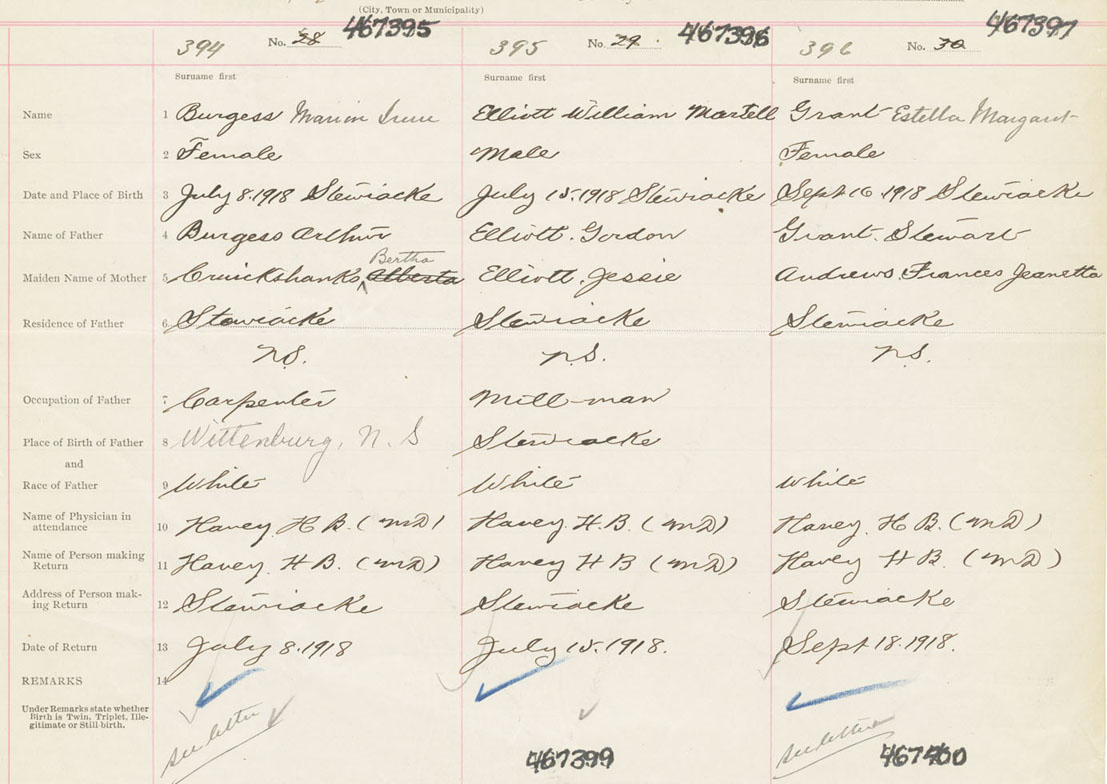 (City, Town or Municipality)
394 No. 28 467395 395 No. 29 467396 396 No. 30 467397
Surname first Surname first Surname first
Name 1 Burgess Marion Irene Elliott William Martell Grant Estella Margaret
Sex 2 Female Male Female
Date and Place of Birth 3 July 8.1918 Stewiacke July 15.1918 Stewiacke Sept 16.1918 Stewiacke
Name of Father 4 Burgess Arthur Elliott. Gordon Grant. Stewart
Bertha
Maiden Name of Mother 5 Cruickshanks Alberta Elliott. Jessie Andrews. Frances Jeanetta
Residence of Father 6 Stewiacke Stewiacke Stewiacke
N.S. N.S. N.S.
Occupation of Father 7 Carpenter Mill-man
Place of Birth of Father 8 Wittenburg, N. S Stewiacke
and
Race of Father 9 White White White
Name of Physician in
attendance 10 Havey H B. (MD) Havey. H.B. (MD) Havey. H B. (MD)
Name of Person making
Return 11 Havey. H B. (MD) Havey H B (MD) Havey H B. (MD)
Address of Person mak-
ing Return 12 Stewiacke Stewiacke Stewiacke
Date of Return 13 July 8.1918 July 15.1918. Sept 18.1918.
REMARKS 14
Under Remarks state whether
Birth is Twin, Triplet, Ille-
gitimate or Still-birth.
see letter see letter
467399 467400